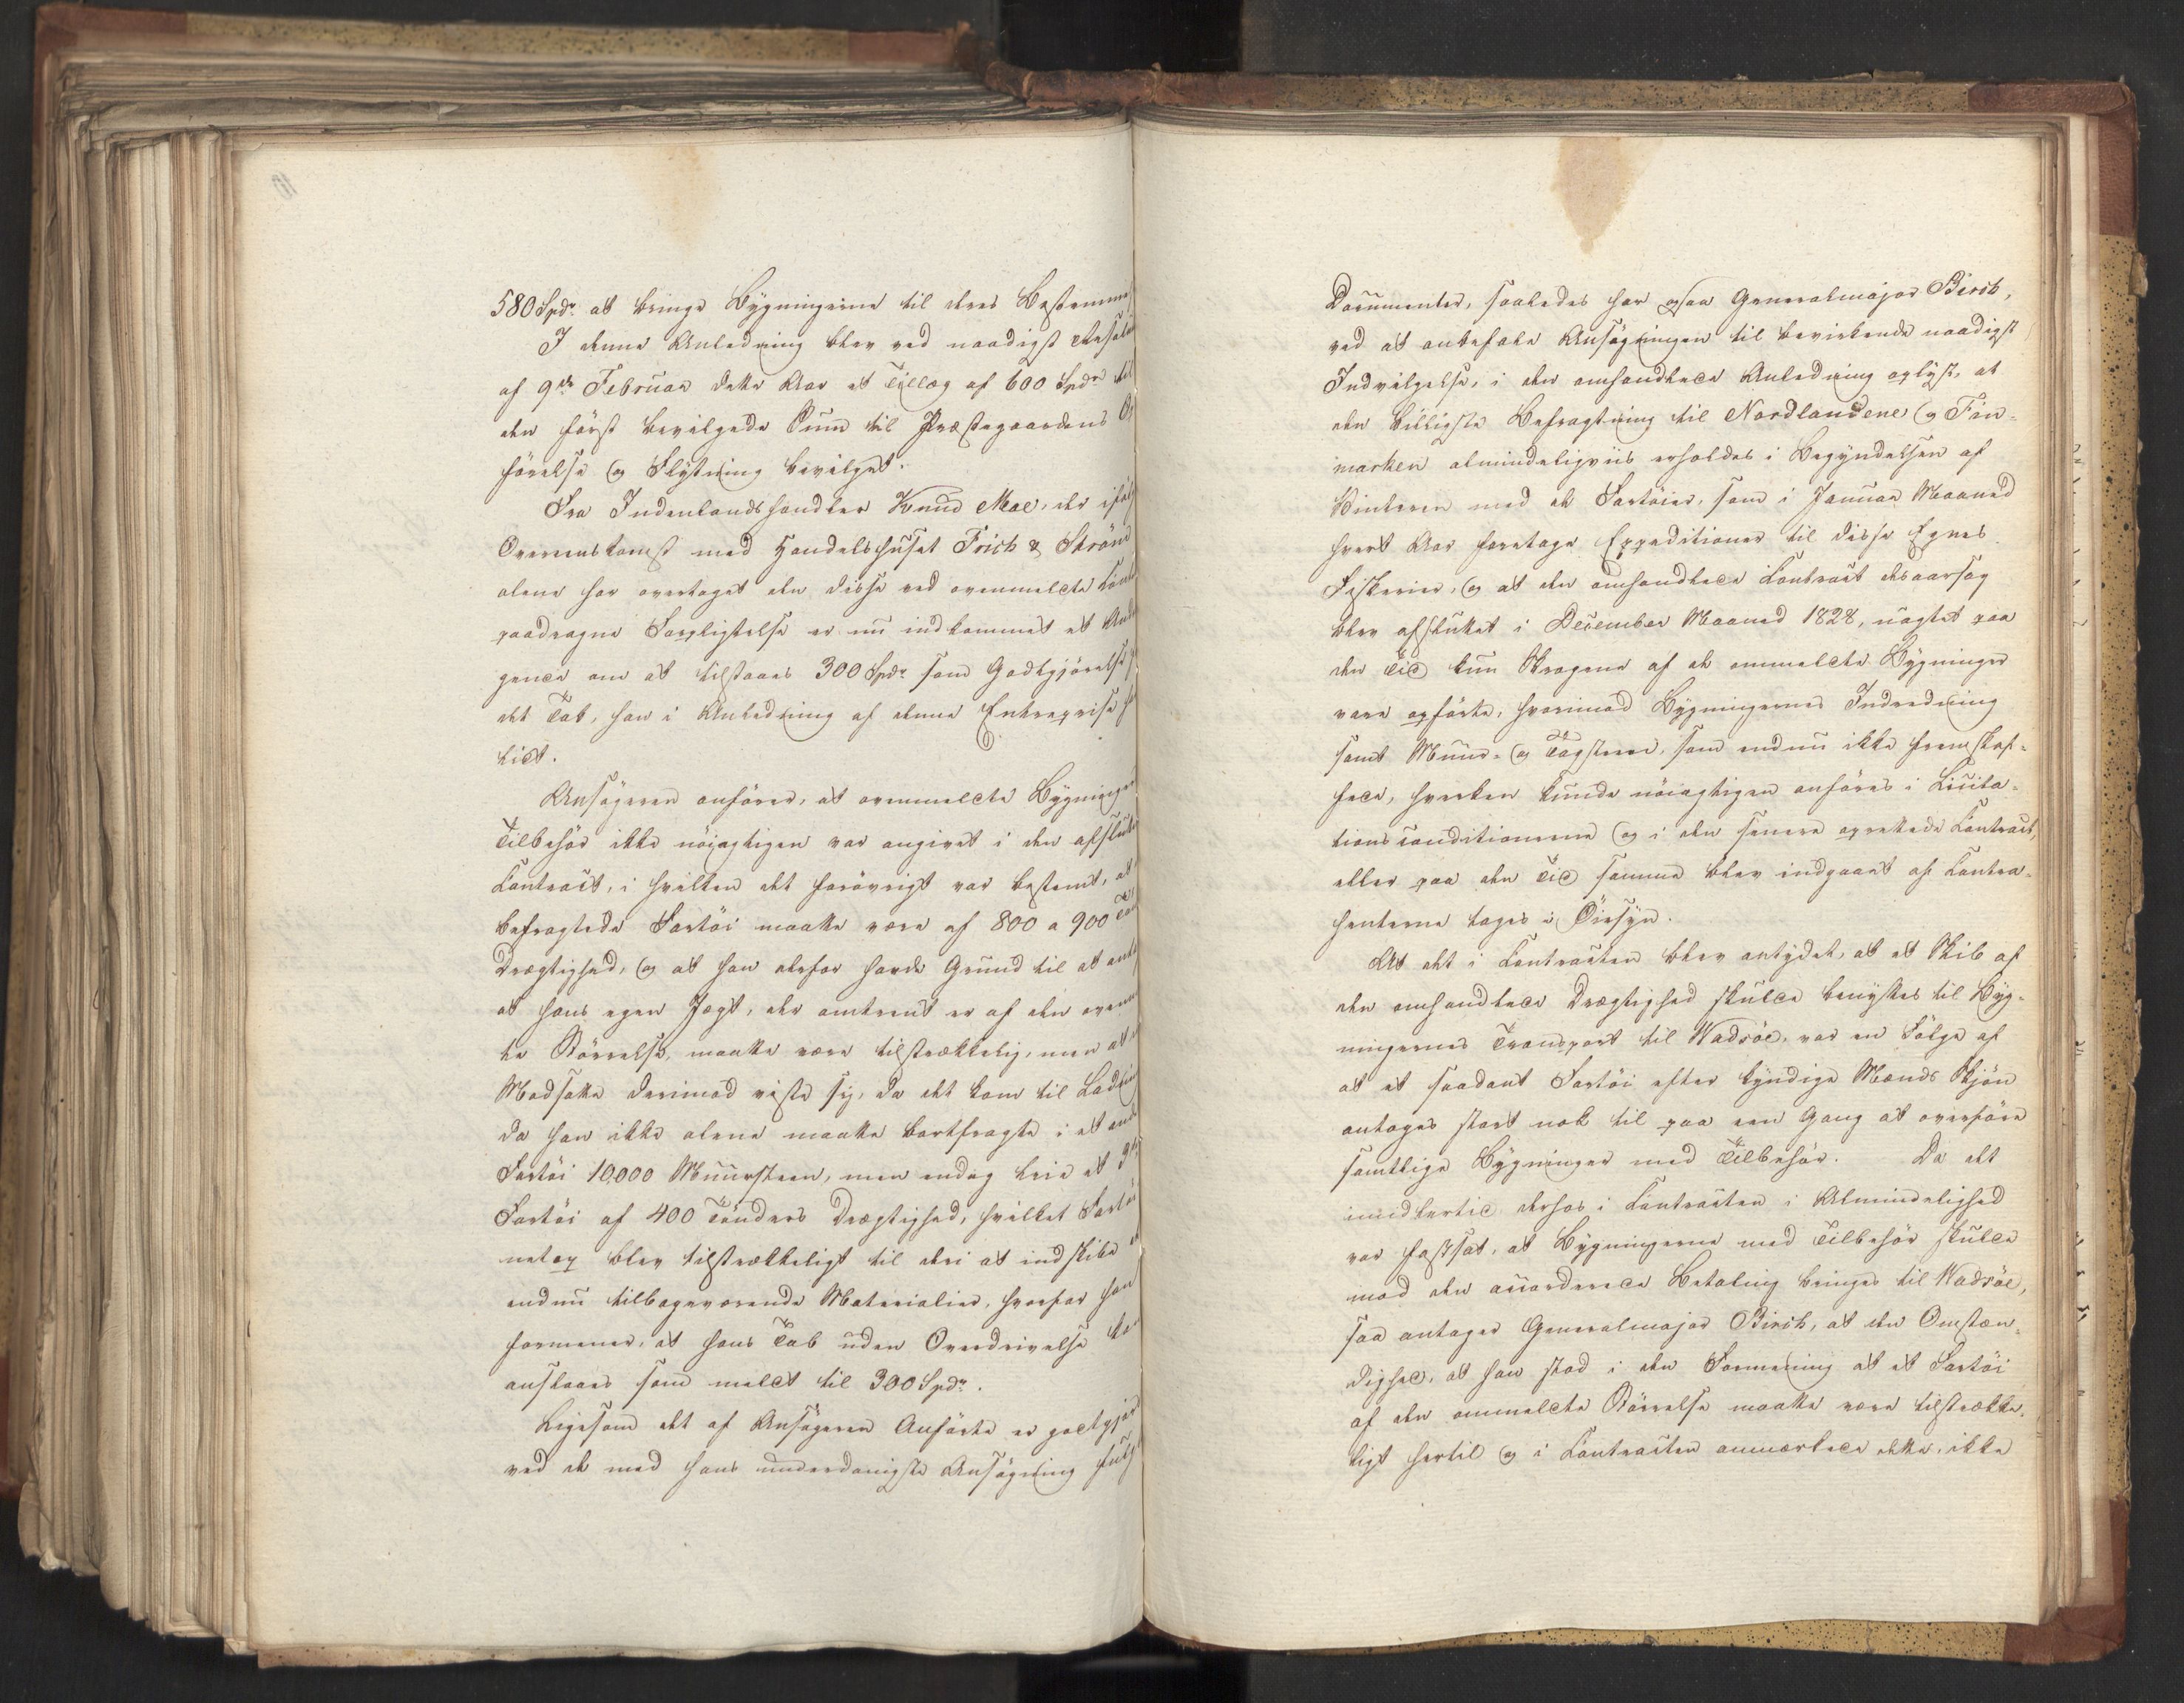 580 Spdr at bringe Bygningerne til deres Bestemme
I denne Anledning blev ved naadigst Resolu
af 9de Februar dette Aar et Tillæg af 600 Spdr til
den først bevilgede Sum til Præstegaardens O
førelse og Flytning bevilget.
Fra Indenlandshandler Knud Moe, der ifølg
Overenskomst med Handelshuset Frich & Strønd
alene har overtaget den disse ved ovenmeldte Cont
paadragne Forpligtelse er nu indkommet et And
gende om at tilstaaes 300 Spdr som Godtgjørelse f
det Tab, han i Anledning af denne Entreprise ha
lidt.
Ansøgeren anfører, at ovenmeldte Bygninger
Tilbehør ikke nøiagtigen var angivet i den afslutte
Contract, i hvilken det forøvrigt var bestemt, at
befragtede Fartøi maatte være af 800 a 900 Tøn
Drægtighed, og at han derfor havde Grund til at anta
at hans egen Jægt, der omtrent er af den ovenm
te Størrelse, maatte være tilstrækkelig, men at
Modsatte derimod viste sig, da det kom til Ladning
da han ikke alene maatte bortfragte i et andet
Fartøi 10,000 Muursteen, men endog leie et 3die
Fartøi af 400 Tønders Drægtighed, hvilket Fartøi
netop blev tilstrækkeligt til deri at indskibe
endnu tilbageværende Materialier, hvorfor han
formener, at hans Tab uden Overdrivelse kan
anslaaes som meldt til 300 Spdr.
Ligesom det af Ansøgeren Anførte er godtgjort
ved de med hans underdanigste Ansøgning fulgte
Documenter, saaledes har ogsaa Generalmajor Birch,
ved at anbefale Ansøgningen til bevirkende naadigst
Indvilgelse, i den omhandlede Anledning oplyst, at
den billigste Befragtning til Nordlandene og Fin-
marken almindeligviis erholdes i Begyndelsen af
Vinteren med de Fartøier, som i Januar Maaned
hvert Aar foretage Expeditioner til disse Egnes
Fiskerier, og at den omhandlede Contract desaarsag
blev afsluttet i December Maaned 1828, uagtet paa
den Tid kun Skrogene af de ommeldte Bygninger
vare opførte, hvorimod Bygningernes Indredning
samt Muur- og Tagsteen, som endnu ikke fremskaf-
fede, hverken kunde nøiagtigen anføres i Licita-
tionsconditionerne og i den senere oprettede Contract,
eller paa den Tid samme blev indgaaet af Contra-
henterne tages i Øiesyn.
At det i Contracten blev antydet, at et Skib af
den omhandlede Drægtighed skulde benyttes til Byg-
ningernes Transport til Wadsøe, var en Følge af
at et saadant Fartøi efter kyndige Mænds Skjøn
antages stort nok til paa een Gang at overføre
samtlige Bygninger med Tilbehør. Da det
imidlertid derhos i Contracten i Almindelighed
var fastsat, at Bygningerne med Tilbehør skulde
mod den accorderede Betaling bringes til Wadsøe,
saa antager Generalmajor Birch, at den Omstæn-
dighed, at han stod i den Formening at et Fartøi
af den ommeldte Størrelse maatte være tilstrække-
ligt hertil og i Contracten anmærkede dette, ikke